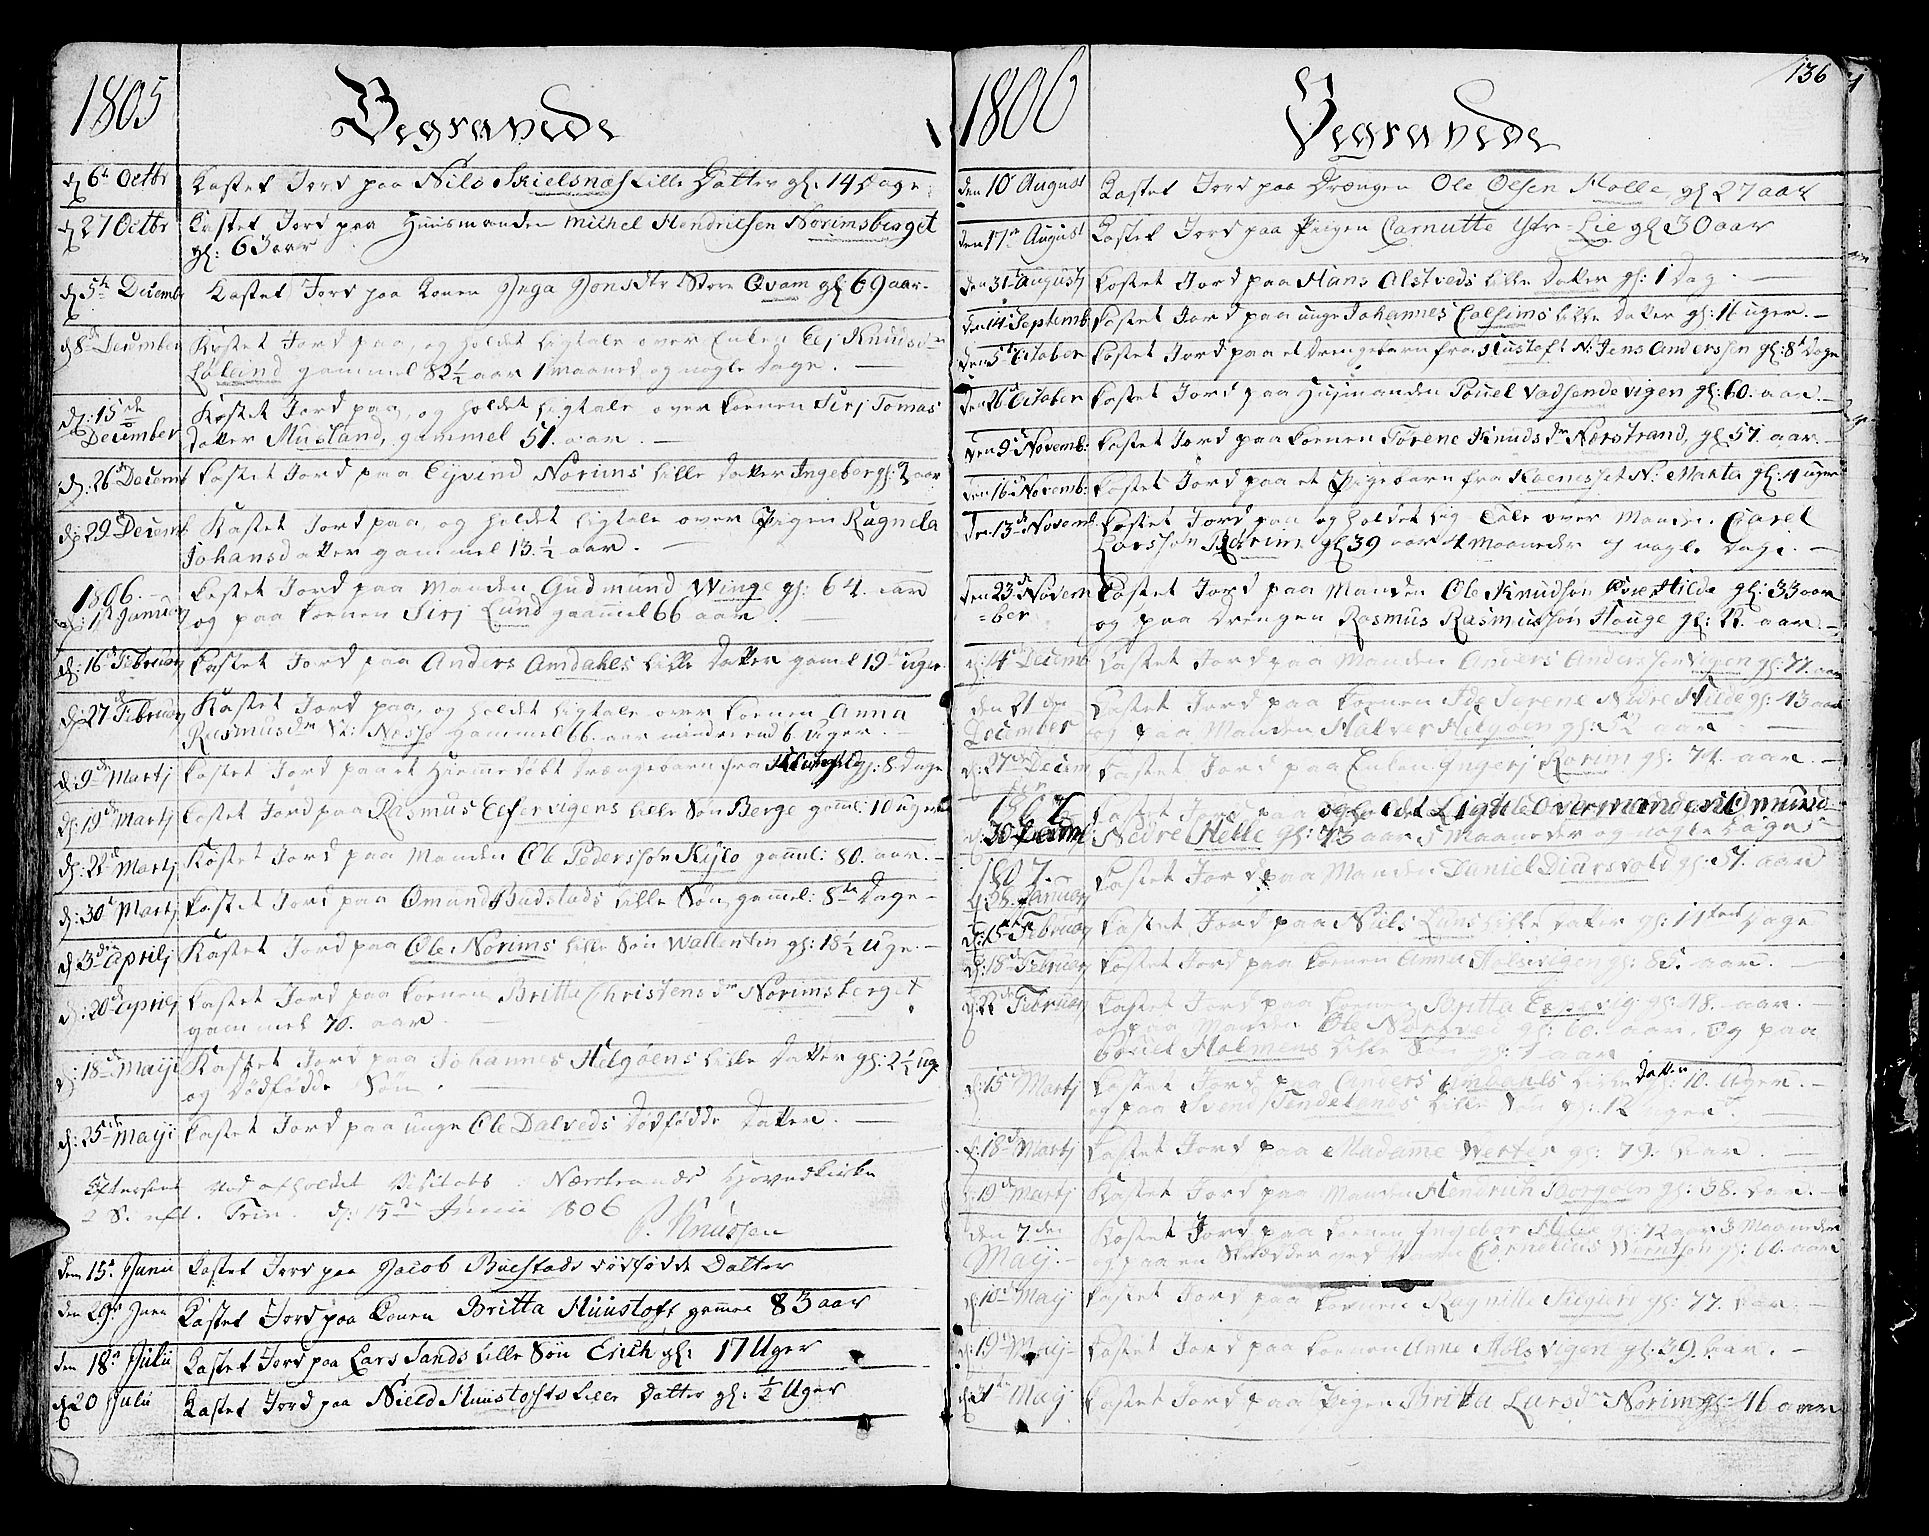 1805
Begravede
d 6te Octbr Kastet Jord paa Nils Skielsnæs Lille Datter gl: 14 Dage
d 27 Octbr Kastet Jord paa Huusmanden Michel Hendrichsen Norimsberget
gl: 63 aar
d 5te Decembr Kastet Jord paa Konen Inga Jonsdtr Store Qvam gl 69 aar
d: 8de December Kastet Jord paa, og holdet Ligtale over Enken Elj Knudsdr
Løland gammel 82½ aar 1 maaned og nogle Dage.
d: 15de Kastet Jord paa, og holdet Ligtale over Konen Sirj Tomas
December datter Musland, gammel 51. aar.
d: 26d Decemb Kastet Jord paa Eyvind Norims Lille Datter Ingeber gl: 2 aar
d: 29 Decemb Kastet Jord paa, og holdet Ligtale over Pigen Ragnela
Johansdatter gammel 13.½ aar.
1806. Kastet Jord paa Manden Gudmund Winge gl: 64. aar
d: 1d Januarj og paa Konen Sirj Lund gammel 66 aar.
d: 16d Februarj Kastet Jord paa Anders Amdahls Lille Datter gamel 19 Uger
d: 27d Februarj Kastet Jord paa, og holdet Ligtale over Konen Anna
Rasmusdr Nessø gammel 66. aar mindre end 6 Uger.
d: 9de Martj Kastet Jord paa et Hiemmedøbt Drængebarn fra gl: 8. Dage
d: 19d Martj Kastet Jord paa Rasmus Elfervigens Lille Søn Berge gamel: 10 Uger
d: 22d Martj Kastet Jord paa Manden Ole Pederssøn Kislo gamel: 80. aar.
d: 30d Martj Kastet Jord paa Omund Budstads Lille Søn gammel: 8te Dage
d: 3die Aprilj Kastet Jord paa Ole Norims Lille Søn Wallentin gl: 15½ Uge.
d: 20d Aprilj Kastet Jord paa Konen Britte Christensdr Norimsberget
gammel 70. aar.
d: 18de Maij Kastet Jord paa Johannes Helgøens Lille Datter gl: 2½ Uge
og dødfødde Søn.
d: 25de Maij Kastet Jord paa unge Ole Dalveds Dødfødde Datter.
Efterseet ved afholdet Visitats i Nærstrands Hovedkirke
2 S. eft. Trin. d: 15de Junii 1806
Knudsen
den 15d Junii Kastet Jord paa Jacob Buestads dødfødde Datter
den 29d Juni Kastet Jord paa Konen Britta Huustoft gamel 83 aar
den 18d Julii Kastet Jord paa Lars Sands Lille Søn Erich gl: 17 Uger
d 20 Julii Kastet Jord paa Nield Huustofts Lille Datter gl: ½ Uger
1806
Begravede
136
den 10 August Kastet Jord paa Drængen Ole Olsen Molle gl 27 aar
den 17de August Kastet Jord paa Pigen Carnutte Lie gl 30 aar
den 31d Augustj Kastet Jord paa Hans Alstveds Lille Datter gl: 1 Dag.
den 14d Septemb Kastet Jord paa unge Johannes Lille Datter gl: 11 uger.
den 5d October Kastet Jord paa et Drengebarn fra Hustoft N: Jens Anderssen gl: 8d Dage
den 26d October Kastet Jord paa Husmanden Pouel Vadsendevigen gl: 60. aar.
den 9d Novemb: Kastet Jord paa Konen Tørene Knudsdr Nærstrand, gl 57. aar.
den 16d Novemb: Kastet Jord paa et Pigebarn fra N: Marta gl: 4 uger
den 13de Novemb Kastet Jord paa og holdet Lig Tale over Manden Carel
Larssøn Rørim gl 39 aar 4 Maaneder og nogle Dage.
den 23de Novem Kastet Jord paa Manden Ole Knudsøn Øvre Hilde gl: 33 aar
=ber og paa Drengen Rasmus Rasmussøn Houge gl: 22. aar.
d: 14d Decemb Kastet Jord paa Manden Anders Andersøn Vigen gl: 77. aar
den 21de Kastet Jord paa Konen Serene Nedre Hilde gl: 43 aar
December og paa Manden Halver Helgøen gl: aar
d: 27de Decem Kastet Jord paa Enken Ingerj Rørim gl: 74. aar.
Kastet Jord paa og holdet Ligtale Over manden Omund
d: 30 Nedre Helle gl: 73 aar 5 Maaneder og nogle Dage
1807. Kastet Jord paa Manden Daniel Diarsvold gl: 51. aar
Januarj
Februarj Kastet Jord paa Niels Lunds Lille Datter gl: 11 Dage
d: 18d Februarj Kastet Jord paa Konen Anna Holsvigen gl: 85. aar.
d: 22 Februarj Kastet Jord paa Konen Espevig gl: 78. aar.
og paa Manden Ole gl: 60. aar. Og paa
Pouel Holmens Lille Søn gl: 1 aar
d: 15d Martj Kastet Jord paa Anders Amdahls Lille Datter gl: 10. Uger.
og paa Svend Lille Søn gl: 12 uger.
d: 18d Martj Kastet Jord paa Madame Werter gl: 79. aar.
d: 19d Martj Kastet Jord paa Manden Hendrich Borgøen gl: 38. aar.
den 7de Kastet Jord paa Konen Ingebor gl: 72 aar 3 Maaneder
Maij. og paa en Skrædder ved Navn Cornelius Werntsøn gl: 60. aar
d: 10d Maij Kastet Jord paa Konen Ragnille gl: 77. aar.
d: 19d Maij Kastet Jord paa Konen Anne Holsvigen gl: 39. aar.
Maij Kastet Jord paa Pigen Britta Larsdr Norim gl: 46 aar